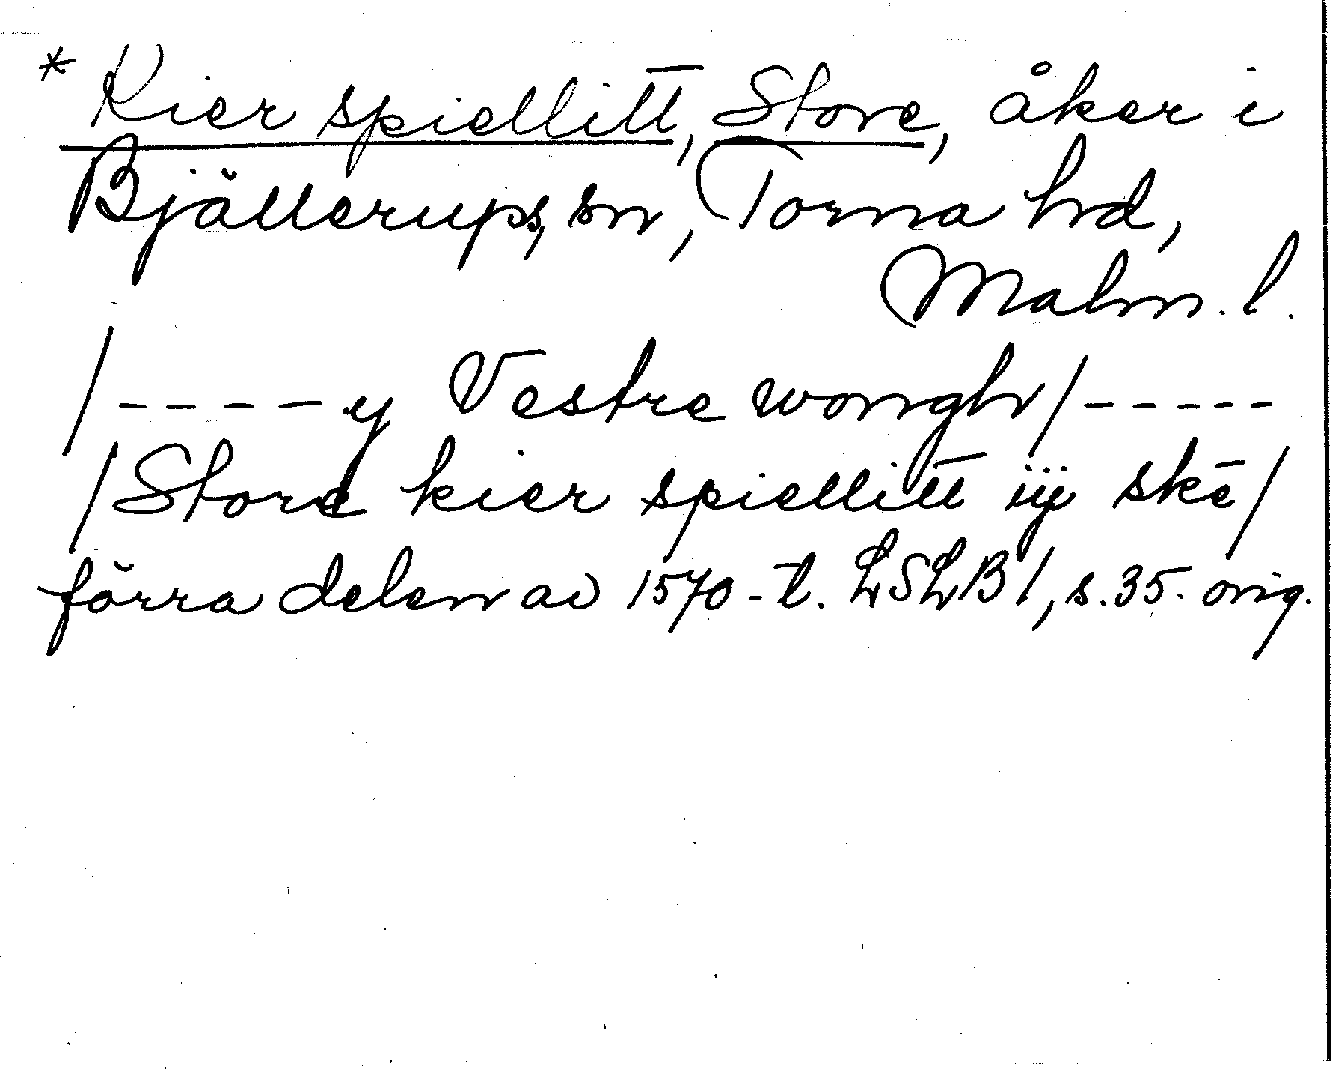 * Kier spiellitt, Store, åker i
Bjällerups, sn, Torna hd,
Malm. l.
/----- y Vestre wongh/-----
/Store kier spiellitt iij skē/
förra delen av 1570-t. LSLB1, s.35. orig.